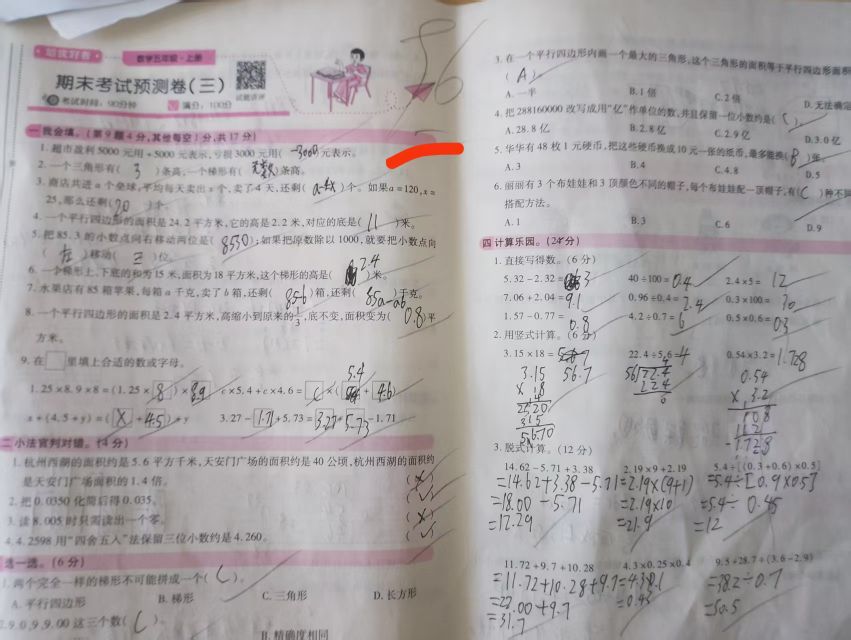 培优好卷
数学五年级·上册
期末考试预测卷(三)
考试时间:90分钟 满分:100分
试题讲评
86
一 我会填。(第9题4分,其他每空1分,共17分)
1. 超市盈利5000元用+5000元表示,亏损3000元用( -3000 )元表示。
2. 一个三角形有( 3 )条高,一个梯形有( 无数 )条高。
3. 商店共进a个垒球,平均每天卖出x个,卖了4天,还剩( a-4x )个。如果a=120,x=
25,那么还剩( 20 )个。
4. 一个平行四边形的面积是24.2平方米,它的高是2.2米,对应的底是( 11 )米。
5. 把85.3的小数点向右移动两位是( 8530 );如果把原数除以1000,就要把小数点向
( 左 )移动( 三 )位。
6. 一个梯形上、下底的和为15米,面积为18平方米,这个梯形的高是( 2.4 )米。
7. 水果店有85箱苹果,每箱a千克,卖了b箱,还剩( 85-b )箱,还剩( 85a-ab )千克。
8. 一个平行四边形的面积是2.4平方米,高缩小到原来的1/3,底不变,面积变为( 0.8 )平
方米。
9. 在□里填上合适的数或字母。
1.25×8.9×8=(1.25×8)×8.9 c×5.4+c×4.6=c×(5.4+4.6)
x+(4.5+y)=(x+4.5)+y 3.27-1.71+5.73=3.27+5.73-1.71
二 小法官判对错。(4分)
1. 杭州西湖的面积约是5.6平方千米,天安门广场的面积约是40公顷,杭州西湖的面积约
是天安门广场的面积的1.4倍。 (×)
2. 把0.0350化简后得0.035。 (√)
3. 读8.005时只需读出一个零。 (×)
4. 4.2598用“四舍五入”法保留三位小数约是4.260。 (√)
选一选。(6分)
1. 两个完全一样的梯形不可能拼成一个( C )。
A. 平行四边形 B. 梯形 C. 三角形 D. 长方形
2. 9.0,9,9.00这三个数( C )。
B. 精确度相同
3. 在一个平行四边形内画一个最大的三角形,这个三角形的面积等于平行四边形面积
( A )
A. 一半 B. 1倍 C. 2倍 D. 无法确定
4. 把288160000改写成用“亿”作单位的数,并且保留一位小数约是( C )。
A. 28.8亿 B. 2.8亿 C. 2.9亿 D. 3.0亿
5. 华华有48枚1元硬币,把这些硬币换成10元一张的纸币,最多能换( B )张。
A. 3 B. 4 C. 4.8 D. 5
6. 丽丽有3个布娃娃和3顶颜色不同的帽子,每个布娃娃配一顶帽子,有( C )种不同
搭配方法。
A. 1 B. 3 C. 6 D. 9
四 计算乐园。(24分)
1. 直接写得数。(6分)
5.32-2.32=3 40÷100=0.4 2.4×5=12
7.06+2.04=9.1 0.96÷0.4=2.4 0.3×100=30
1.57-0.77=0.8 4.2÷0.7=6 0.5×0.6=0.3
2. 用竖式计算。(6分)
3.15×18=56.7 22.4÷5.6=4 0.54×3.2=1.728
3.15 4 0.54
× 18 56 224 × 3.2
2520 224 108
315 0 162
56.70 1.728
3. 脱式计算。(12分)
14.62-5.71+3.38 2.19×9+2.19 5.4÷[(0.3+0.6)×0.5]
=14.62+3.38-5.71 =2.19×(9+1) =5.4÷[0.9×0.5]
=18.00-5.71 =2.19×10 =5.4÷0.45
=12.29 =21.9 =12
11.72+9.7+10.28 4.3×0.25×0.4 9.5+28.7÷(3.6-2.9)
=11.72+10.28+9.7 =4.3×0.1 =38.2÷0.7
=22.00+9.7 =0.43 =50.5
=31.7